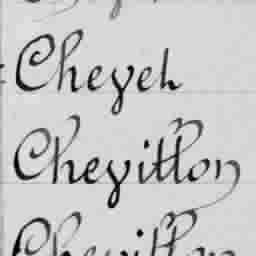 Cheyeh
Cheyitton